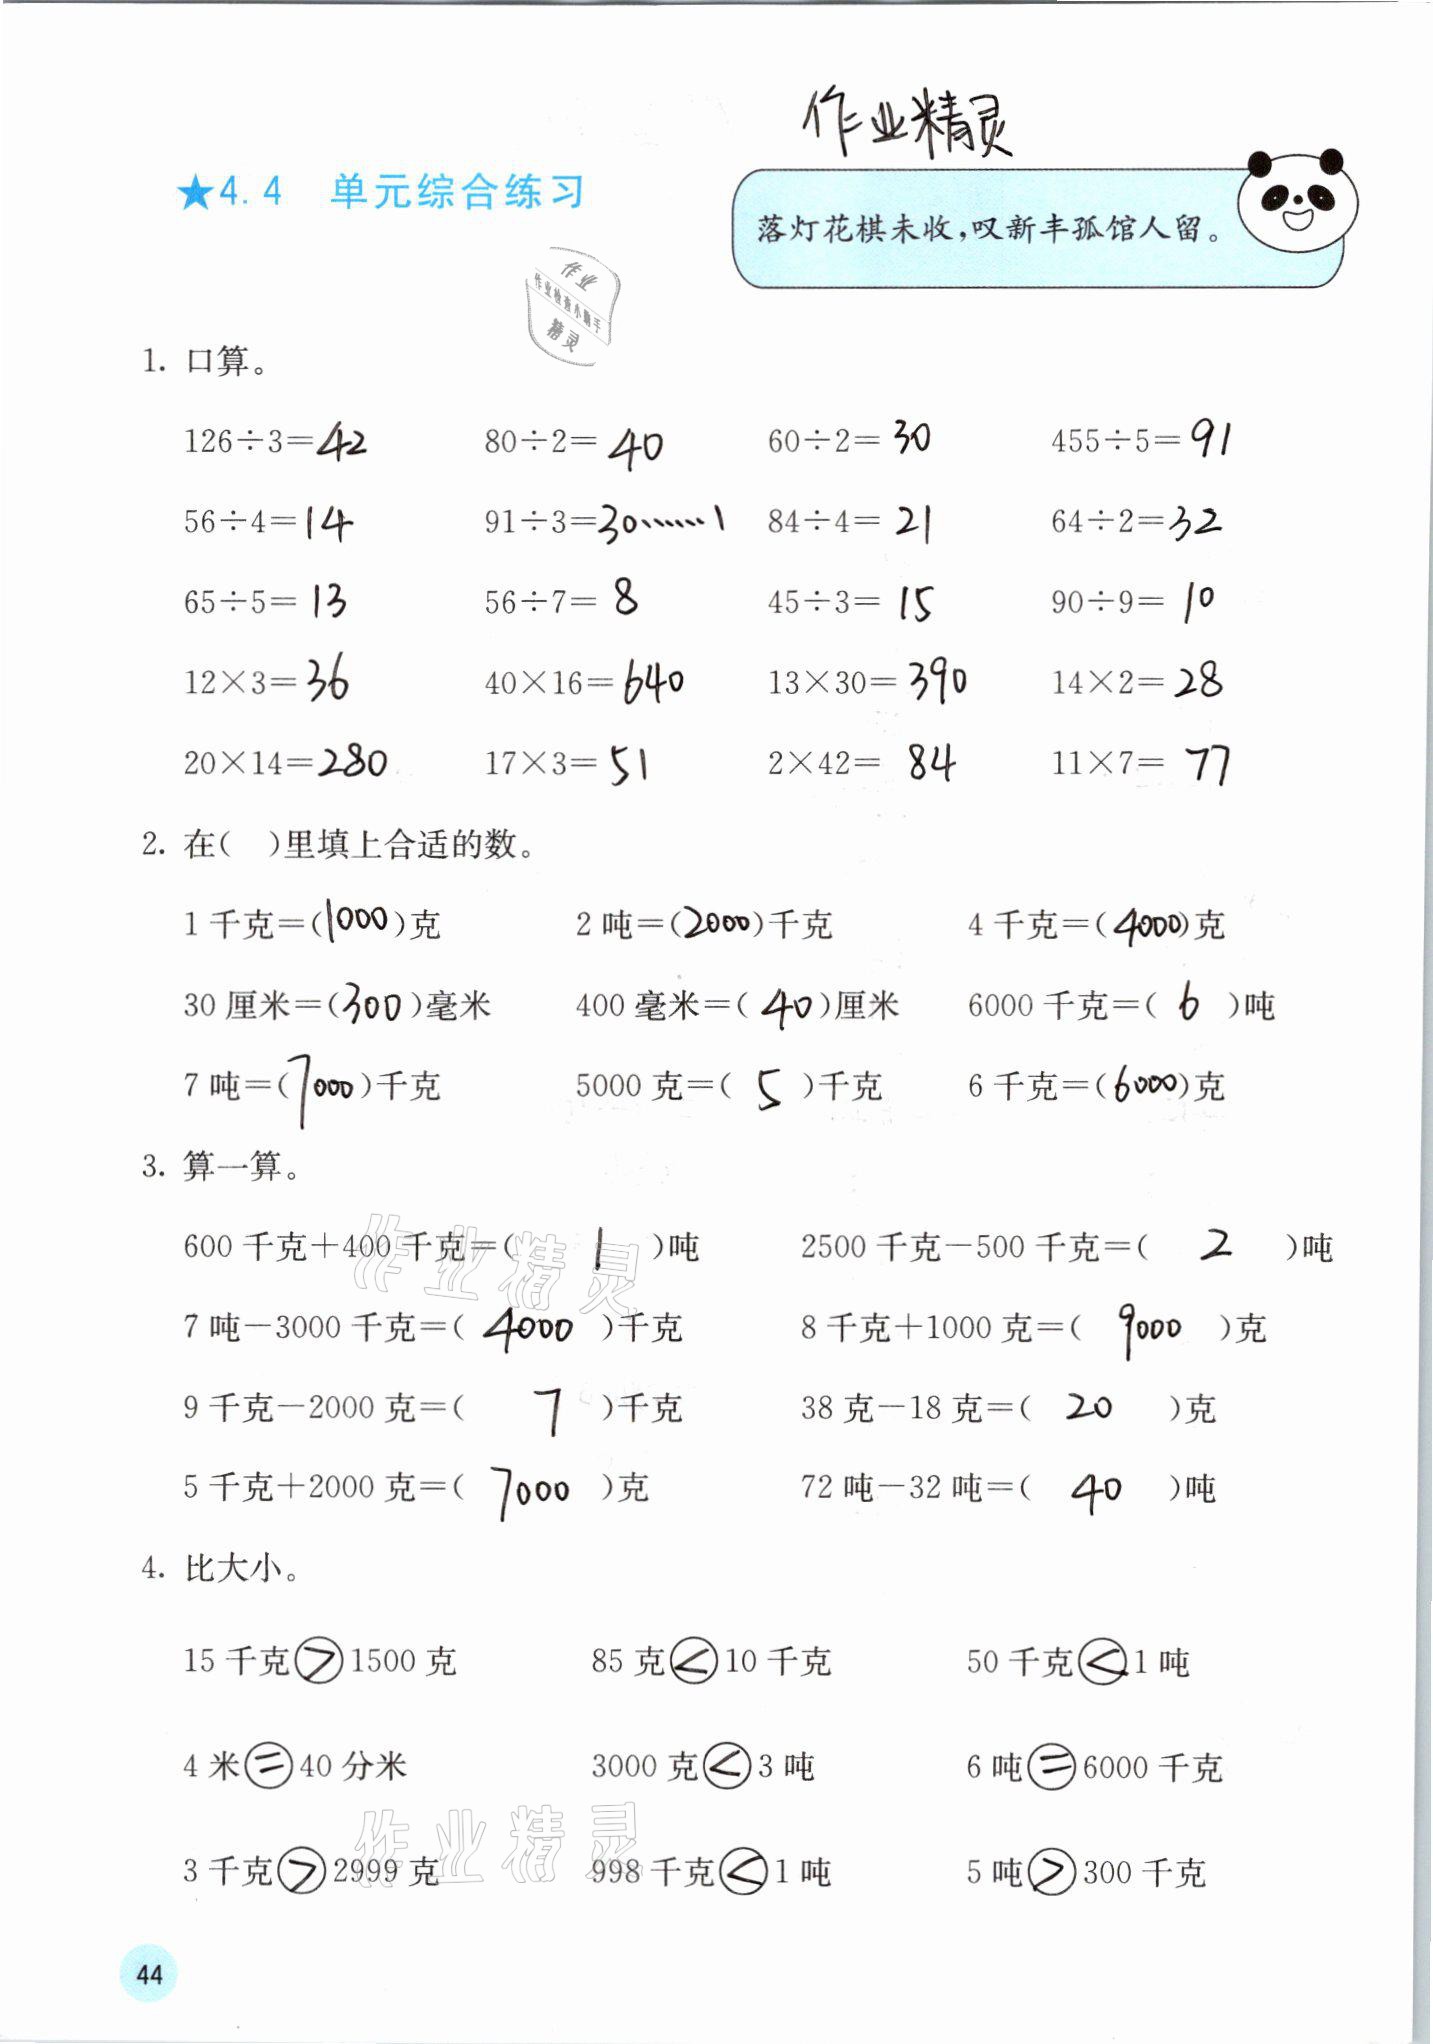 作业精灵
★4.4 单元综合练习
落灯花棋未收,叹新丰孤馆人留。
作业
作业检查小助手
精灵
1. 口算。
126÷3=42 80÷2=40 60÷2=30 455÷5=91
56÷4=14 91÷3=30……1 84÷4=21 64÷2=32
65÷5=13 56÷7=8 45÷3=15 90÷9=10
12×3=36 40×16=640 13×30=390 14×2=28
20×14=280 17×3=51 2×42=84 11×7=77
2. 在( )里填上合适的数。
1千克=(1000)克 2吨=(2000)千克 4千克=(4000)克
30厘米=(300)毫米 400毫米=(40)厘米 6000千克=(6)吨
7吨=(7000)千克 5000克=(5)千克 6千克=(6000)克
3. 算一算。
600千克+400千克=(1)吨 2500千克-500千克=(2)吨
作业精灵
7吨-3000千克=(4000)千克 8千克+1000克=(9000)克
9千克-2000克=(7)千克 38克-18克=(20)克
5千克+2000克=(7000)克 72吨-32吨=(40)吨
4. 比大小。
15千克>1500克 85克<10千克 50千克<1吨
4米=40分米 3000克<3吨 6吨=6000千克
作业精灵
3千克>2999克 998千克<1吨 5吨>300千克
44